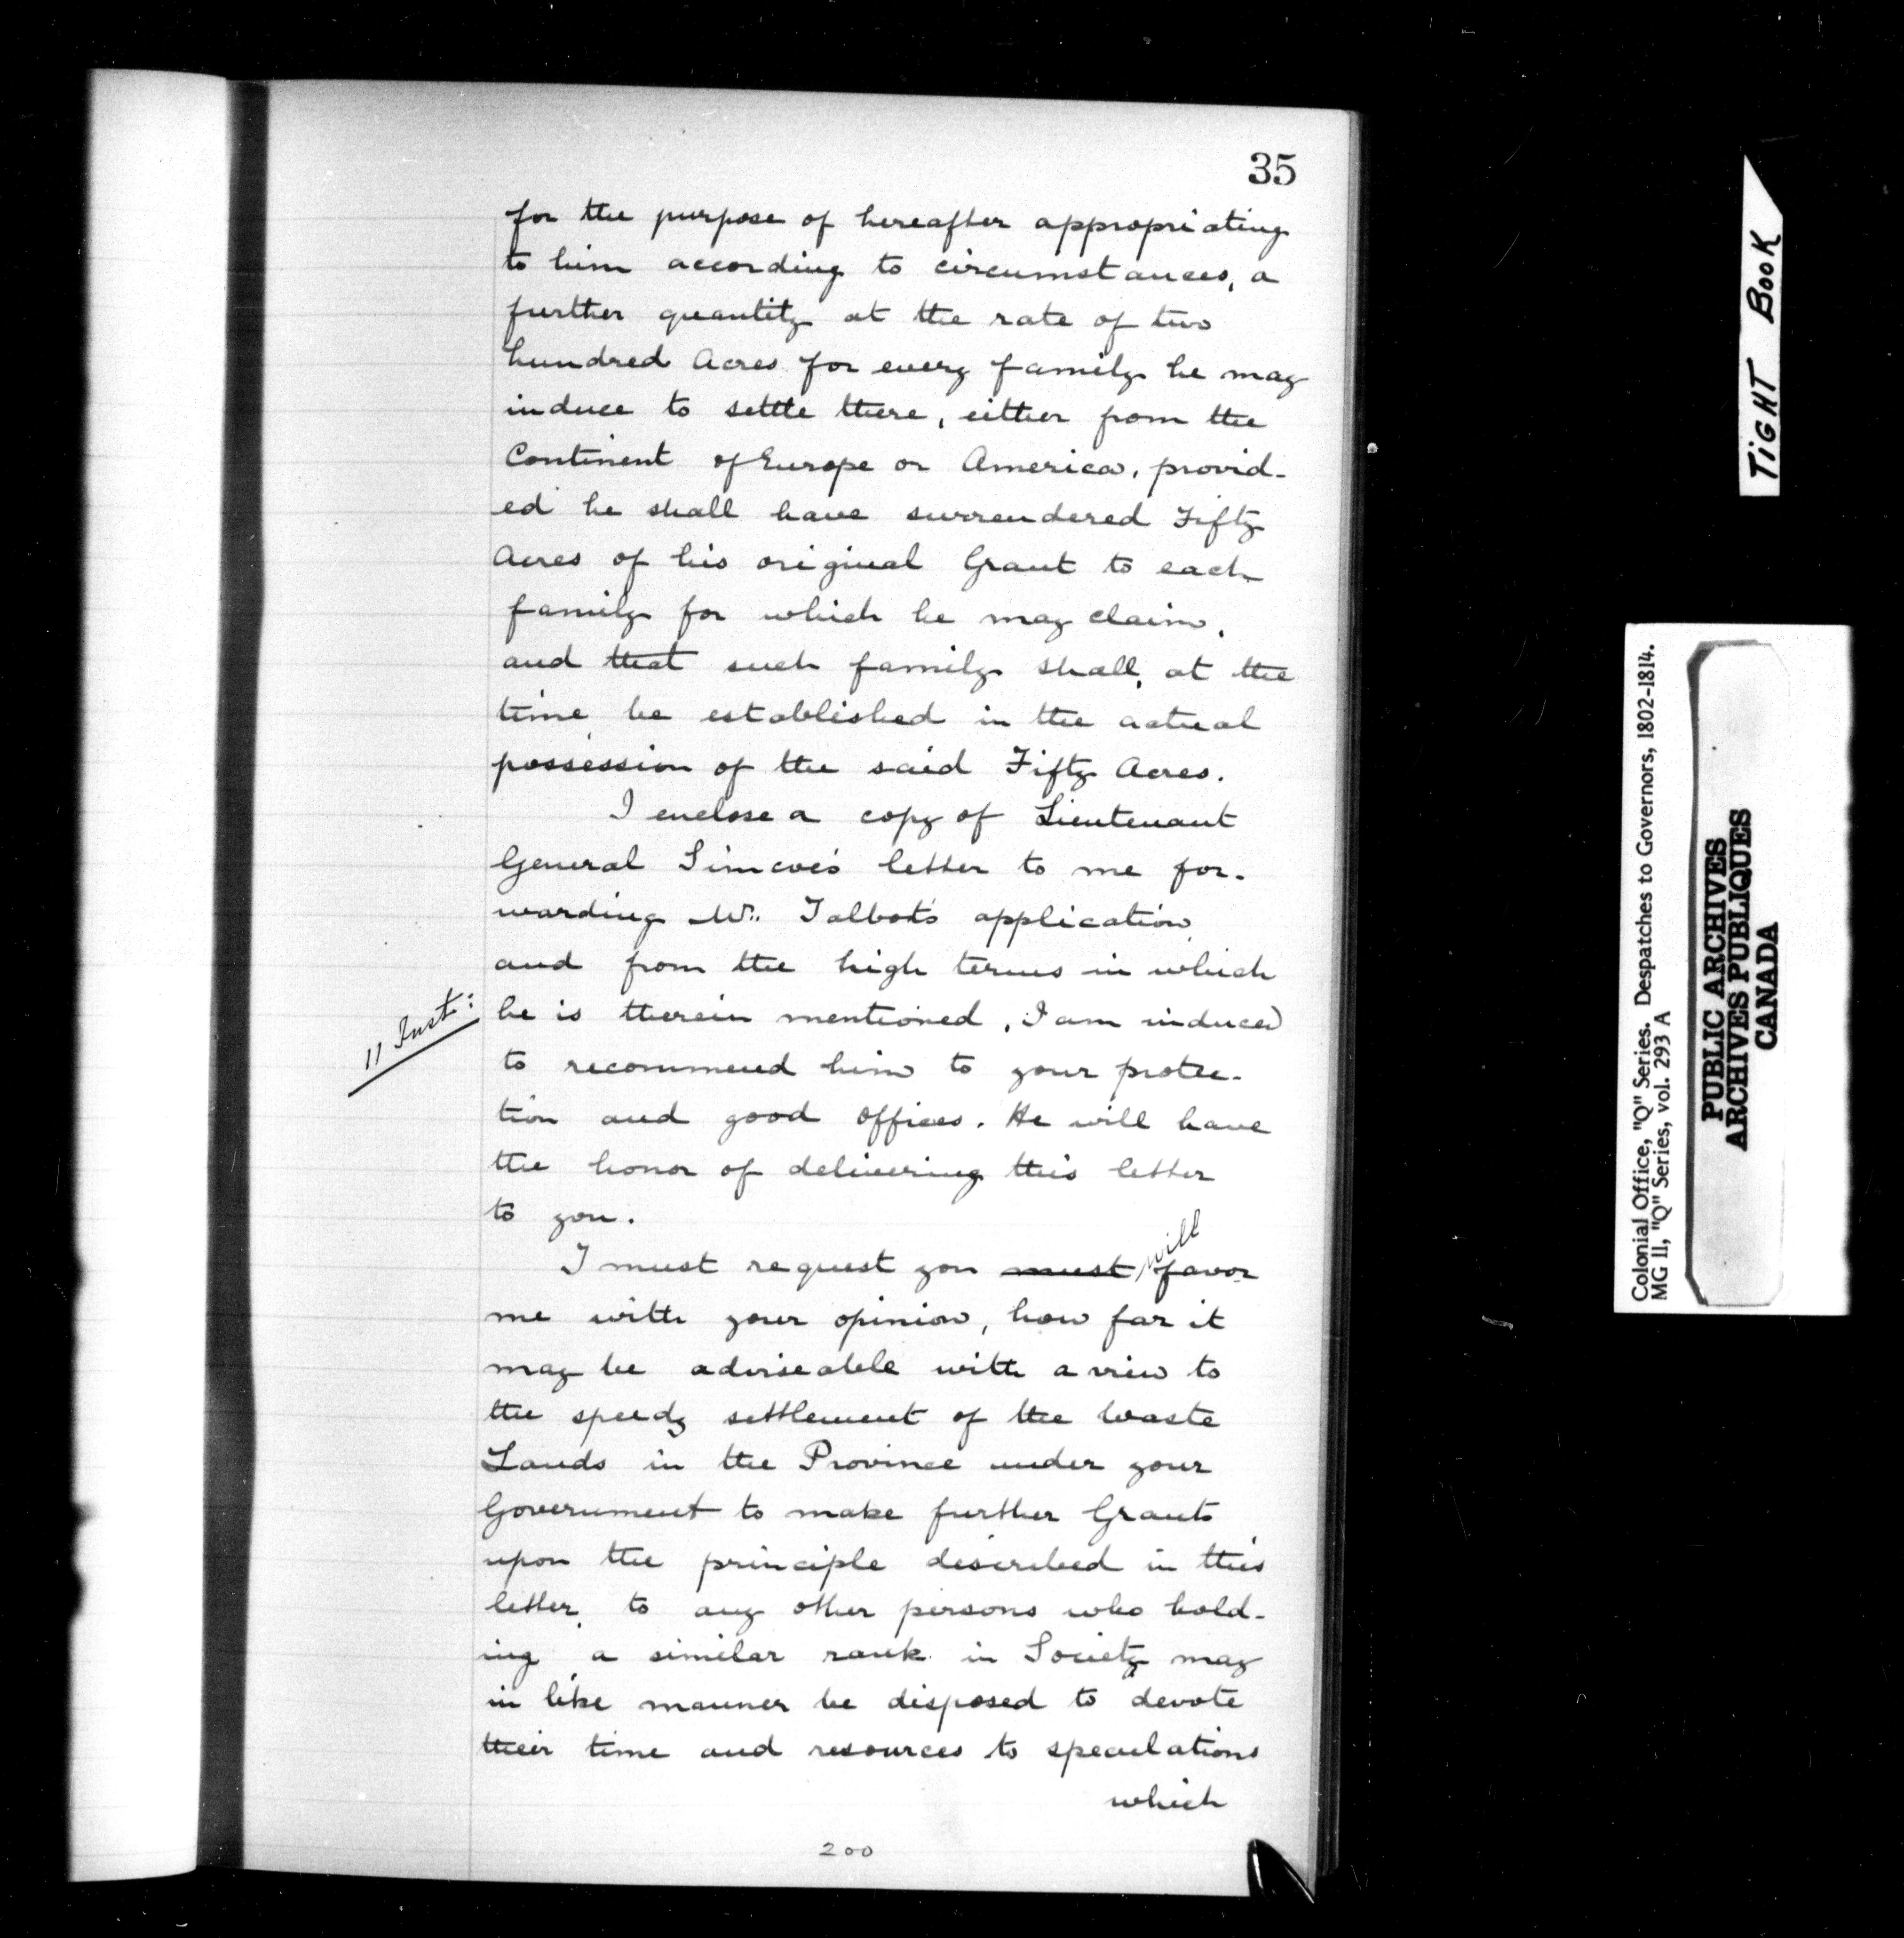 35
for the purpose of hereafter appropriating
to him according to circumstances, a
further quantity at the rate of two
hundred Acres for every family he may
induce to settle there, either from the
Continent of Europe or America, provid-
ed he shall have surrendered Fifty
Acres of his original Grant to each
family for which he may claim,
and that such family shall, at the
time be established in the actual
possession of the said Fifty Acres.
I enclose a copy of Lieutenant
General Simcoe's letter to me for-
warding Mr. Talbot's application
and from the high terms in which
11 Inst:
he is therein mentioned, I am induced
to recommend him to your protec-
tion and good offices. He will have
the honor of delivering this letter
to you.
will
I must request you must favor
me with your opinion, how far it
may be adviseable with a view to
the speedy settlement of the Waste
Lands in the Province under your
Government to make further Grants
upon the principle described in this
letter, to any other persons who hold-
ing a similar rank in Society may
in like manner be disposed to devote
their time and resources to speculations
which
200
TIGHT BOOK
Colonial Office, "Q" Series. Despatches to Governors, 1802-1814.
MG 11, "Q" Series, vol. 293 A
PUBLIC ARCHIVES
ARCHIVES PUBLIQUES
CANADA